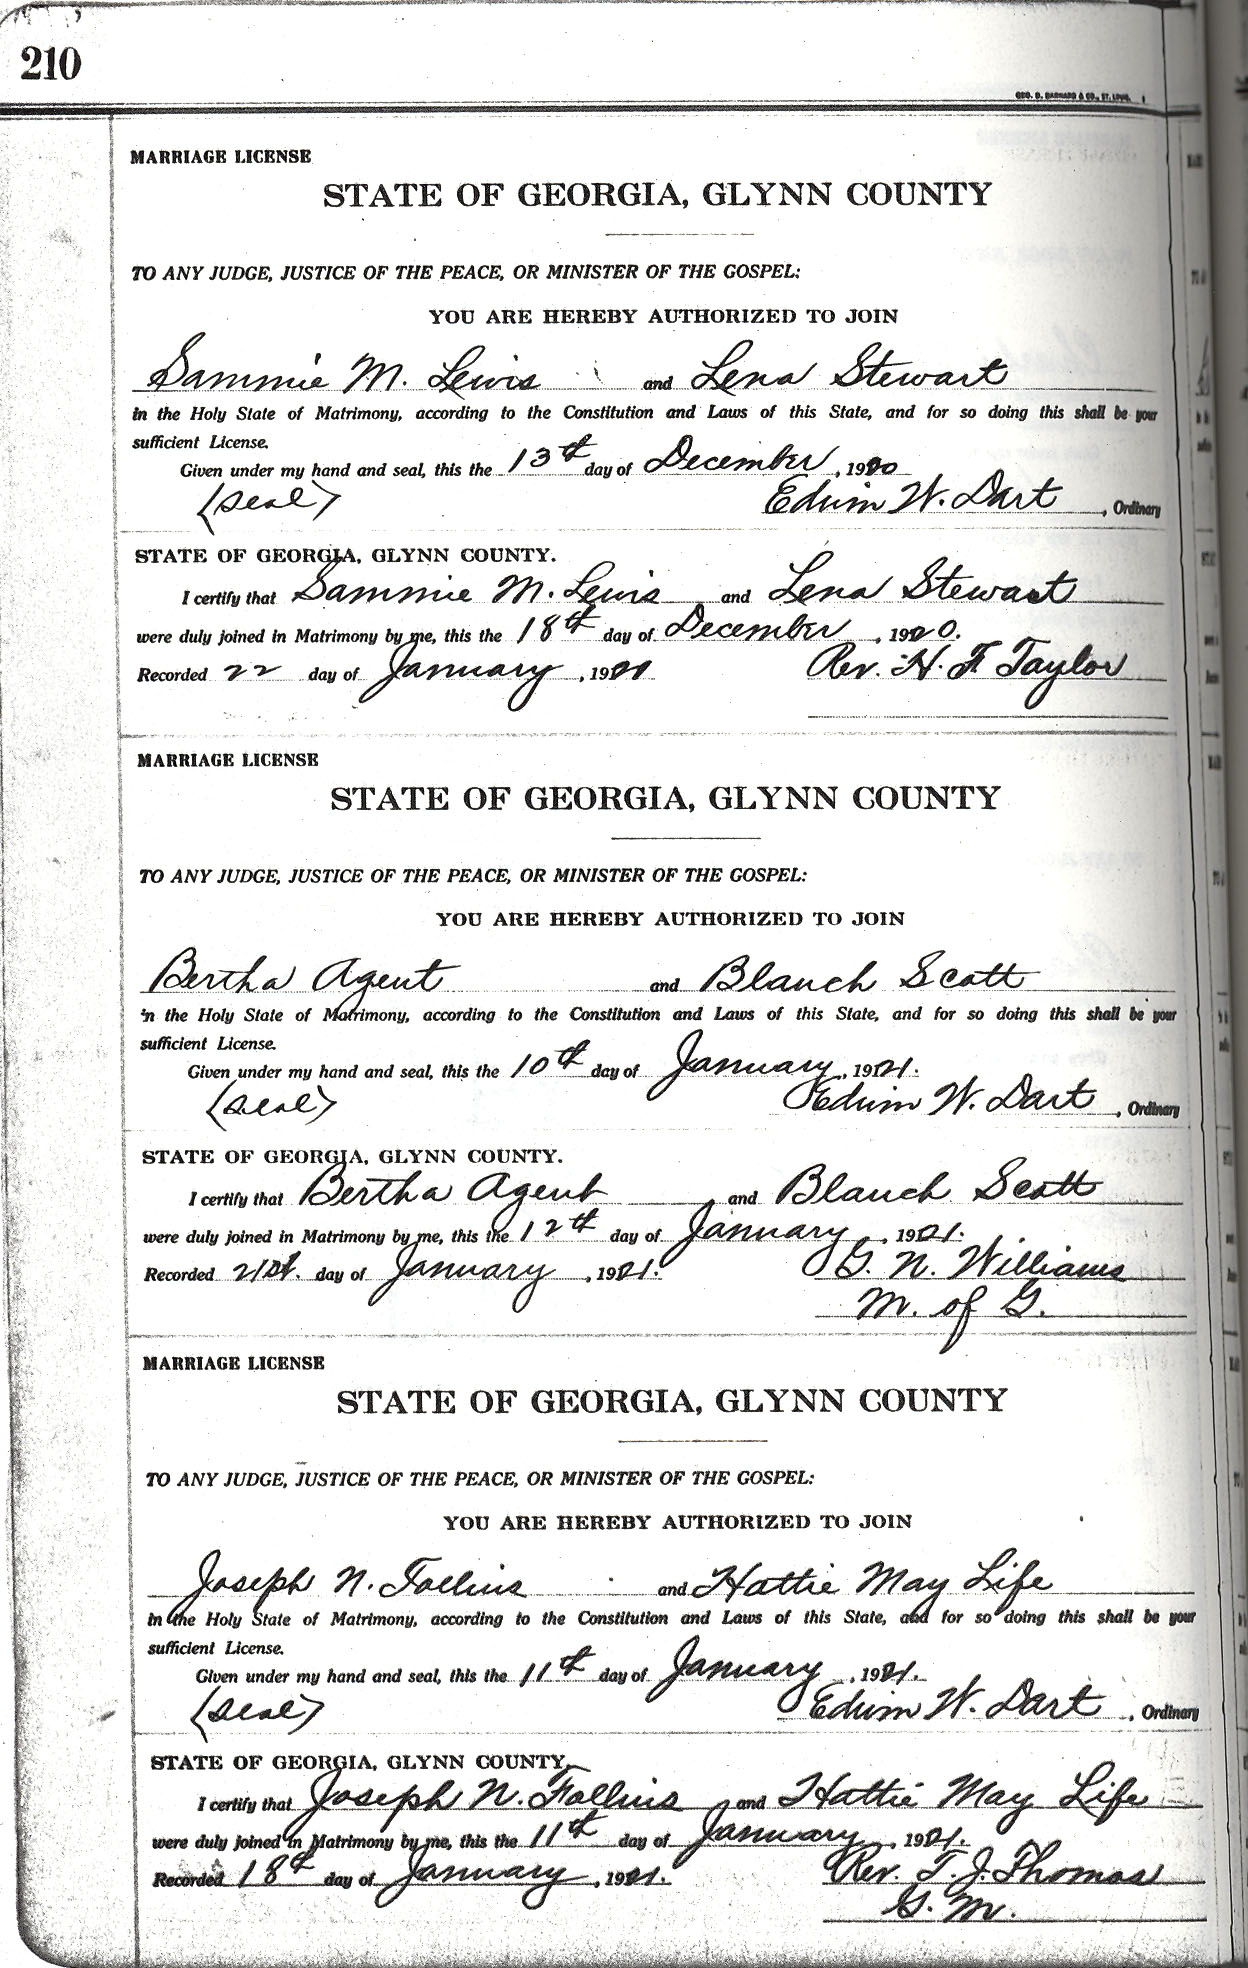 210
GEO. D. BARNARD & CO., ST. LOUIS.
MARRIAGE LICENSE
STATE OF GEORGIA, GLYNN COUNTY
TO ANY JUDGE, JUSTICE OF THE PEACE, OR MINISTER OF THE GOSPEL:
YOU ARE HEREBY AUTHORIZED TO JOIN
Sammie M. Lewis and Lena Stewart
in the Holy State of Matrimony, according to the Constitution and Laws of this State, and for so doing this shall be your
sufficient License.
Given under my hand and seal, this the 13th day of December, 1920
(Seal) Edwin W. Dart, Ordinary
STATE OF GEORGIA, GLYNN COUNTY.
I certify that Sammie M. Lewis and Lena Stewart
were duly joined in Matrimony by me, this the 18th day of December, 1920.
Recorded 22 day of January, 1921 Rev. H. F. Taylor
MARRIAGE LICENSE
STATE OF GEORGIA, GLYNN COUNTY
TO ANY JUDGE, JUSTICE OF THE PEACE, OR MINISTER OF THE GOSPEL:
YOU ARE HEREBY AUTHORIZED TO JOIN
Bertha Agent and Blanch Scott
in the Holy State of Matrimony, according to the Constitution and Laws of this State, and for so doing this shall be your
sufficient License.
Given under my hand and seal, this the 10th day of January, 1921.
(Seal) Edwin W. Dart, Ordinary
STATE OF GEORGIA, GLYNN COUNTY.
I certify that Bertha Agent and Blanch Scott
were duly joined in Matrimony by me, this the 12th day of January, 1921.
Recorded 21st. day of January, 1921. G. N. Williams
M. of G.
MARRIAGE LICENSE
STATE OF GEORGIA, GLYNN COUNTY
TO ANY JUDGE, JUSTICE OF THE PEACE, OR MINISTER OF THE GOSPEL:
YOU ARE HEREBY AUTHORIZED TO JOIN
Joseph N. Follins and Hattie May Life
in the Holy State of Matrimony, according to the Constitution and Laws of this State, and for so doing this shall be your
sufficient License.
Given under my hand and seal, this the 11th day of January, 1921.
(Seal) Edwin W. Dart, Ordinary
STATE OF GEORGIA, GLYNN COUNTY.
I certify that Joseph N. Follins and Hattie May Life
were duly joined in Matrimony by me, this the 11th day of January, 1921.
Recorded 18th day of January, 1921. Rev. T. J. Thomas
G. M.